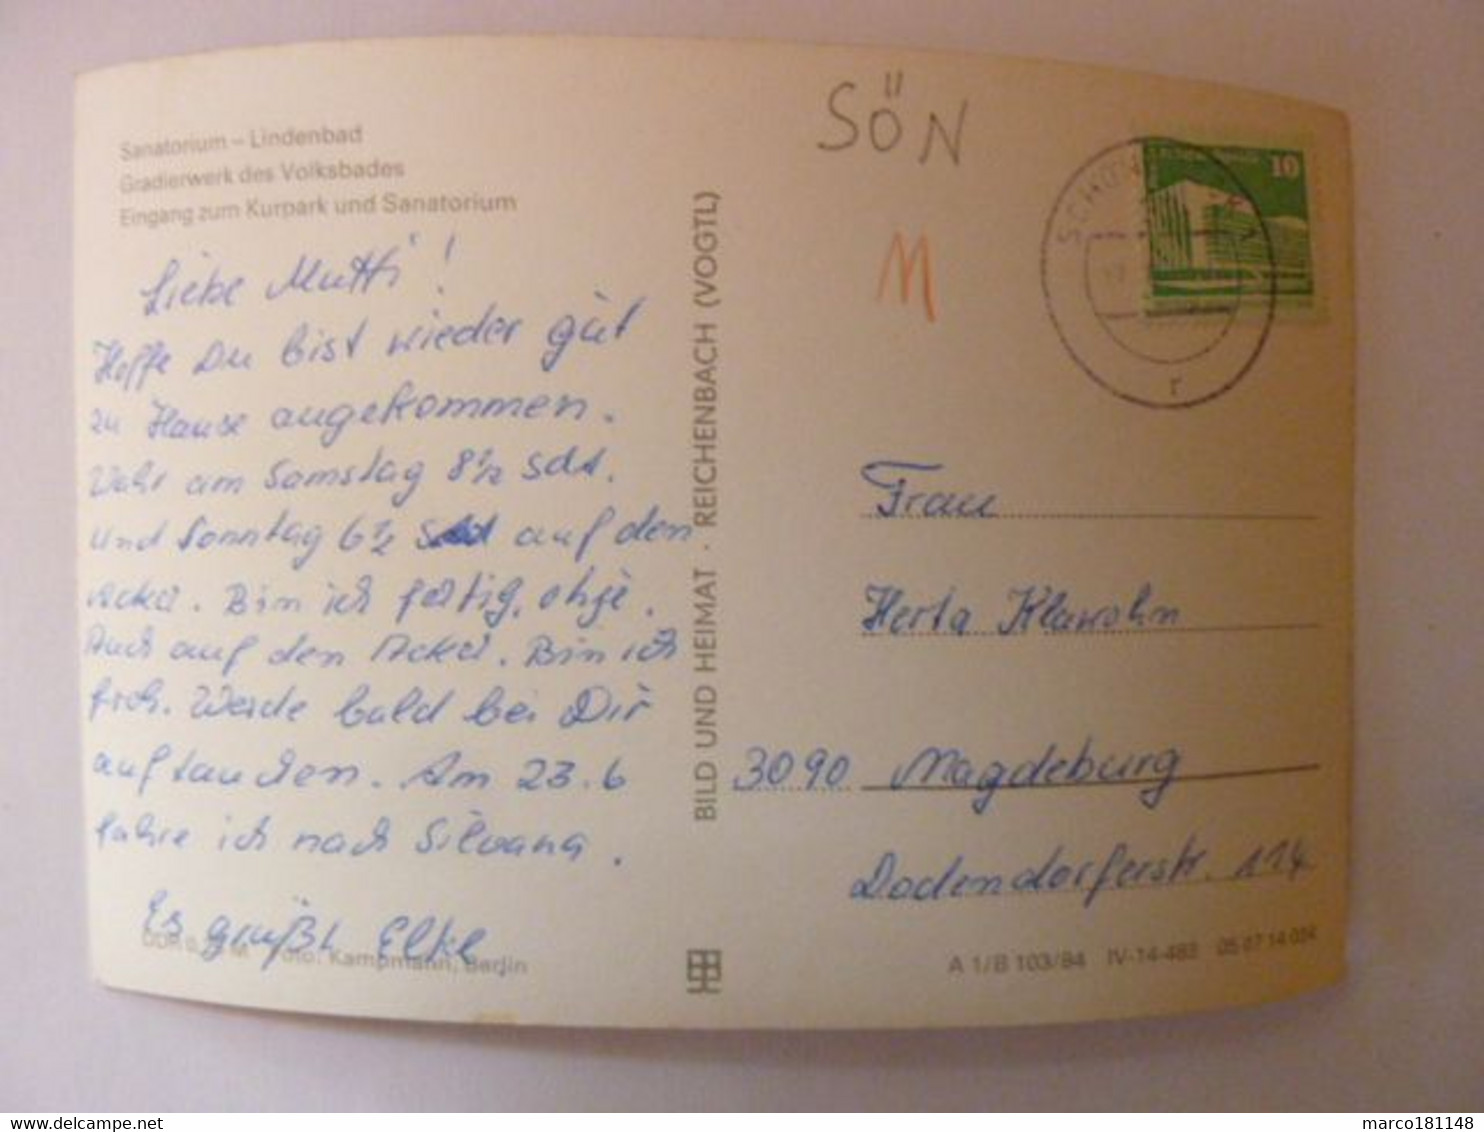 Sanatorium – Lindenbad
Gradierwerk des Volksbades
Eingang zum Kurpark und Sanatorium
Liebe Mutti!
Hoffe Du bist wieder gut
zu Hause angekommen.
Wahr am Samstag 8½ Sdt.
und Sonntag 6½ Sdt auf den
Acker. Bin ich fertig, ohje.
Auch auf den Acker. Bin ich
froh. Werde bald bei Dir
auftauchen. Am 23.6
fahre ich nach Silvana.
Es grüßt Elke
Foto: Kampmann, Berlin
BILD UND HEIMAT · REICHENBACH (VOGTL)
SÖN
M
10
r
Frau
Herta Klawohn
3090 Magdeburg
Dodendorferstr. 114
A 1/B 103/84 IV-14-483 05 07 14 034
marco181148